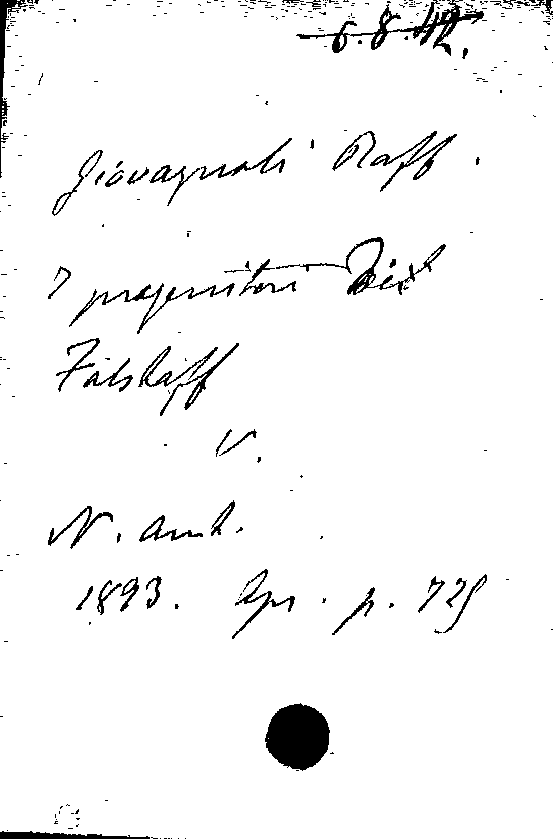 6.8.42.
Giovagnoli Raff.
I progenitori Del
Falstaff
v.
N. Ant.
1893. Apr. p. 725